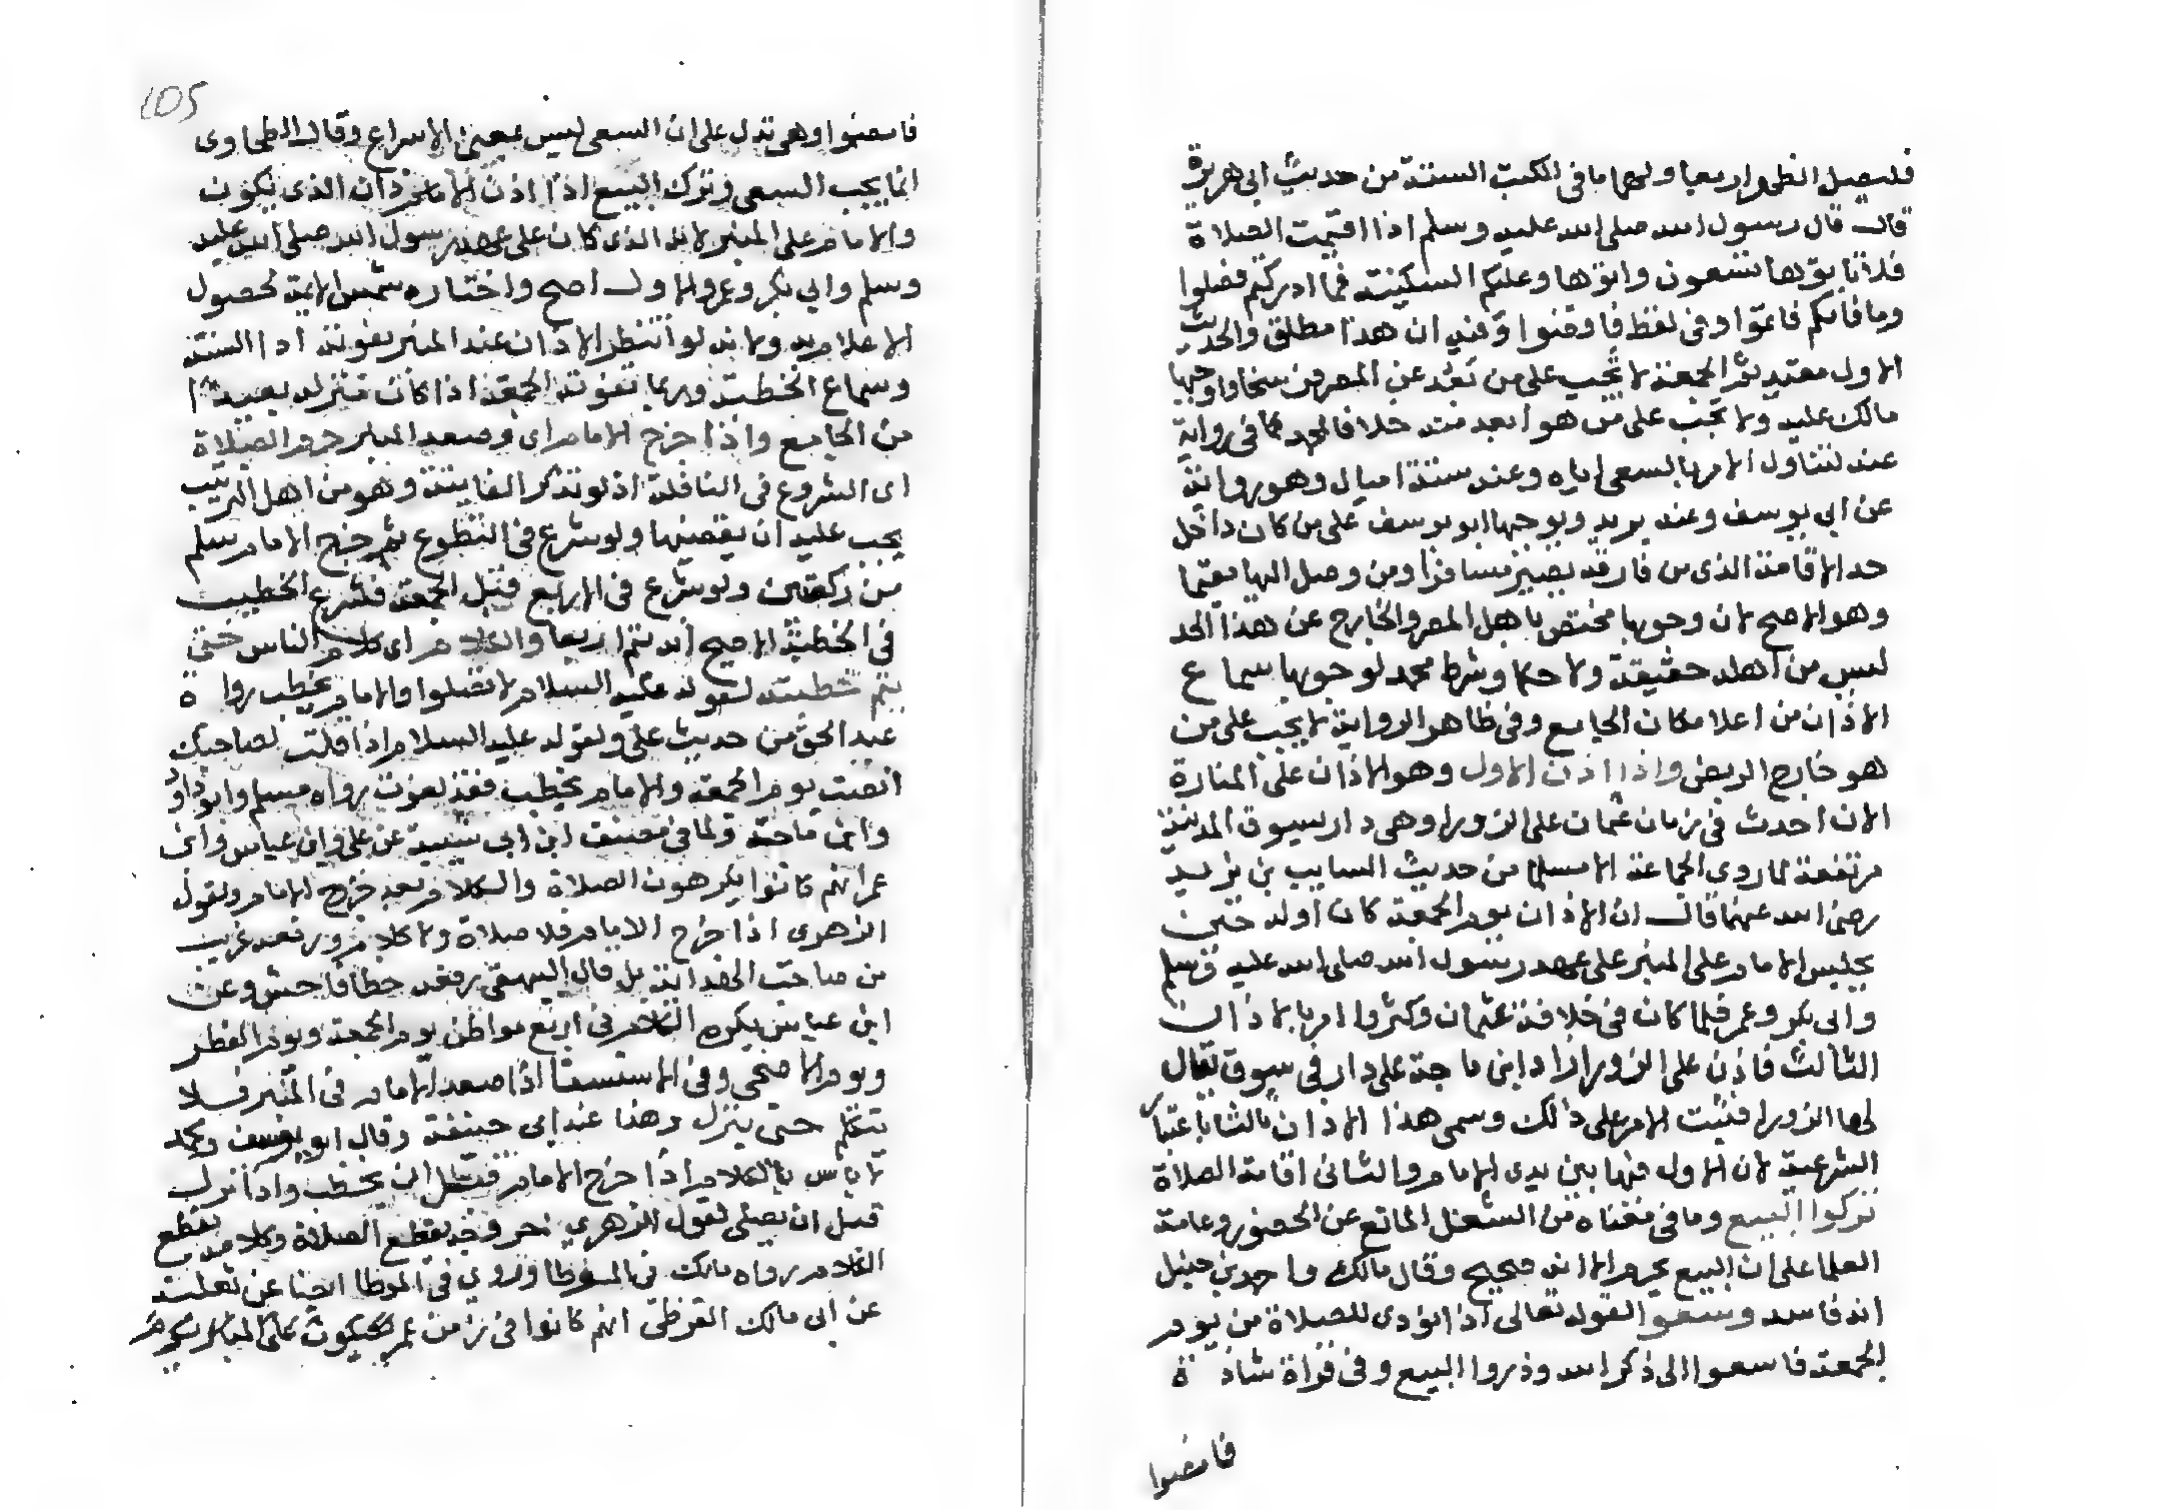 فليصل الظهر اربعا ولهما ما في الكتب الستة من حديث ابي هريرة
قال قال رسول الله صلى الله عليه وسلم اذا اقيمت الصلاة
فلا تاتوها تسعون واتوها وعليكم السكينة فما ادركتم فصلوا
وما فاتكم فاتموا وفي لفظ فاقضوا وفيه ان هذا مطلق والحديث
الاول مقيد ثم الجمعة لا تجب على من بعد عن المصر فرسخا واوجبها
مالك عليه ولا تجب على من هو ابعد منه خلافا لمحمد كما في رواية
عنه لتناول الامر بالسعي اياه وعند ستة اميال وهو رواية
عن ابي يوسف وعنه بريد ويوجبها ابو يوسف على من كان داخل
حد الاقامة الذي من فارقه يصير مسافرا ومن وصل اليها مقيما
وهو الاصح لان وجوبها مختص باهل المصر والخارج عن هذا الحد
ليس من اهله حقيقة ولا حكما وشرط محمد لوجوبها سماع
الاذان من اعلا مكان الجامع وفي ظاهر الرواية لا يجب على من
هو خارج الربض واذا اذن الاول وهو الاذان على المنارة
الان احدث في زمان عثمان على الزورا وهي دار بسوق المدينة
مرتفعة لما روى الجماعة الا مسلما من حديث السايب بن يزيد
رضي الله عنهما قال ان الاذان يوم الجمعة كان اوله حين
يجلس الامام على المنبر على عهد رسول الله صلى الله عليه وسلم
وابي بكر وعمر فلما كان في خلافة عثمان وكثروا امر بالاذان
الثالث فاذن على الزورا زاد ابن ماجة على دار في سوق يقال
لها الزورا فثبت الامر على ذلك وسمى هذا الاذان ثالثا باعتبار
الشرعية لان الاول فيها بين يدي الامام والثاني اقامة الصلاة
تركوا البيع وما في معناه من الشغل المانع عن الحضور وعامة
العلما على ان البيع يحرم الا انه صحيح وقال مالك واحمد بن حنبل
انه فاسد وسعوا لقوله تعالى اذا نودى للصلاة من يوم
الجمعة فاسعوا الى ذكر الله وذروا البيع وفي قراة شاذة
فامضوا
105
فامضوا وهي تدل على ان السعي ليس بمعنى الاسراع وقال الطحاوى
انما يجب السعي وترك البيع اذا اذن الاذان الذي يكون
والامام على المنبر لانه الذي كان على عهد رسول الله صلى الله عليه
وسلم وابي بكر وعمر والاول اصح واختاره شمس الائمة لحصول
الاعلام به ولانه لو انتظر الاذان عند المنبر يفوته ادا السنة
وسماع الخطبة وربما تفوته الجمعة اذا كان منزله بعيدا
من الجامع واذا خرج الامام اى وصعد المنبر حرم الصلاة
اى الشروع في النافلة اذ لو تذكر الفايتة وهو من اهل الترتيب
يجب عليه ان يقضيها ولو شرع في التطوع ثم خرج الامام سلم
من ركعتين ولو شرع في الاربع قبل الجمعة فشرع الخطيب
في الخطبة الاصح انه يتم اربعا والكلام اى كلام الناس حتى
يتم خطبته لقوله عليه السلام لا تصلوا والامام يخطب رواه
عبد الحق من حديث علي ولقوله عليه السلام اذا قلت لصاحبك
انصت يوم الجمعة والامام يخطب فقد لغوت رواه مسلم وابو داود
وابن ماجة ولما في مصنف ابن ابي شيبة عن علي وابن عباس وابن
عمر انهم كانوا يكرهون الصلاة والكلام بعد خرج الامام ولقول
الزهري اذا خرج الامام فلا صلاة ولا كلام ورفعه غريب
من صاحب الهداية بل قال البيهقي رفعه خطا فاحش وعن
ابن عباس يكره الكلام في اربع مواطن يوم الجمعة ويوم الفطر
ويوم الاضحى وفي الاستسقا اذا صعد الامام في المنبر فلا
يتكلم حتى ينزل وهذا عند ابي حنيفة وقال ابو يوسف ومحمد
لا باس بالكلام اذا خرج الامام قبل ان يخطب واذا نزل
قبل ان يصلي لقول الزهري خروجه يقطع الصلاة وكلامه يقطع
الكلام رواه مالك في الموطا وروي في الموطا ايضا عن ثعلبة
عن ابي مالك القرظي انهم كانوا في زمن عمر